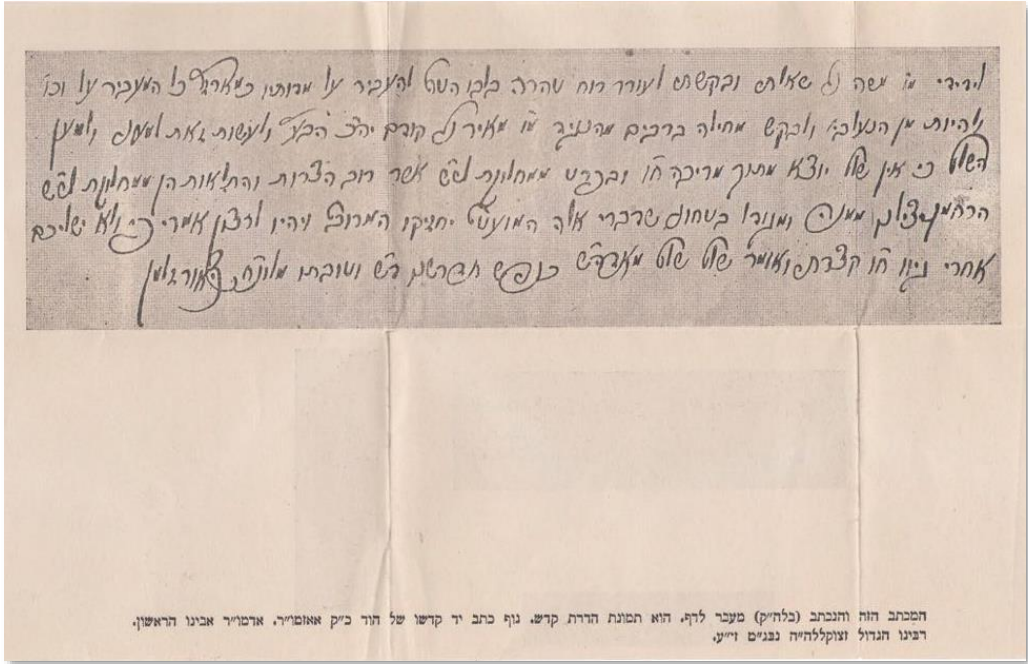 לידידי מו׳ משה נ"י שאלתי ובקשתי לעורר רוח טהרה בלבו הטוב להעביר על מדותיו כמארז"ל כל המעביר על וכו׳
ולהיות מן הנעלבי׳ ולבקש מחילה ברבים מהנגיד מו׳ מאיר נ"י קודם יה"כ ולעשות זאת למענם ולמען
השלום כי אין יוצא מתוך מריבה ח"ו ובפרט ממחלוקת לש"ש אשר רוב הצרות והתלאות הן ממחלוקת לש"ש
הרחמן יצילנו ממנה שדברי אלה המועטים יחזיקו המרובה ויהיו לרצון אמרי פי ולא ישליכם
אחרי גיוו ח"ו קצרתי ואומר שלום שלום כנפש וטובתו
המכתב הזה והנכתב (בלה"ק) מעבר לדף. הוא תמונת הדרת קדש. גוף כתב יד קדשו של הוד כ"ק אאזמו"ר. אדמו"ר אבינו הראשון.
רבינו הגדול זצוקללה"ה נבג"ם זי"ע.